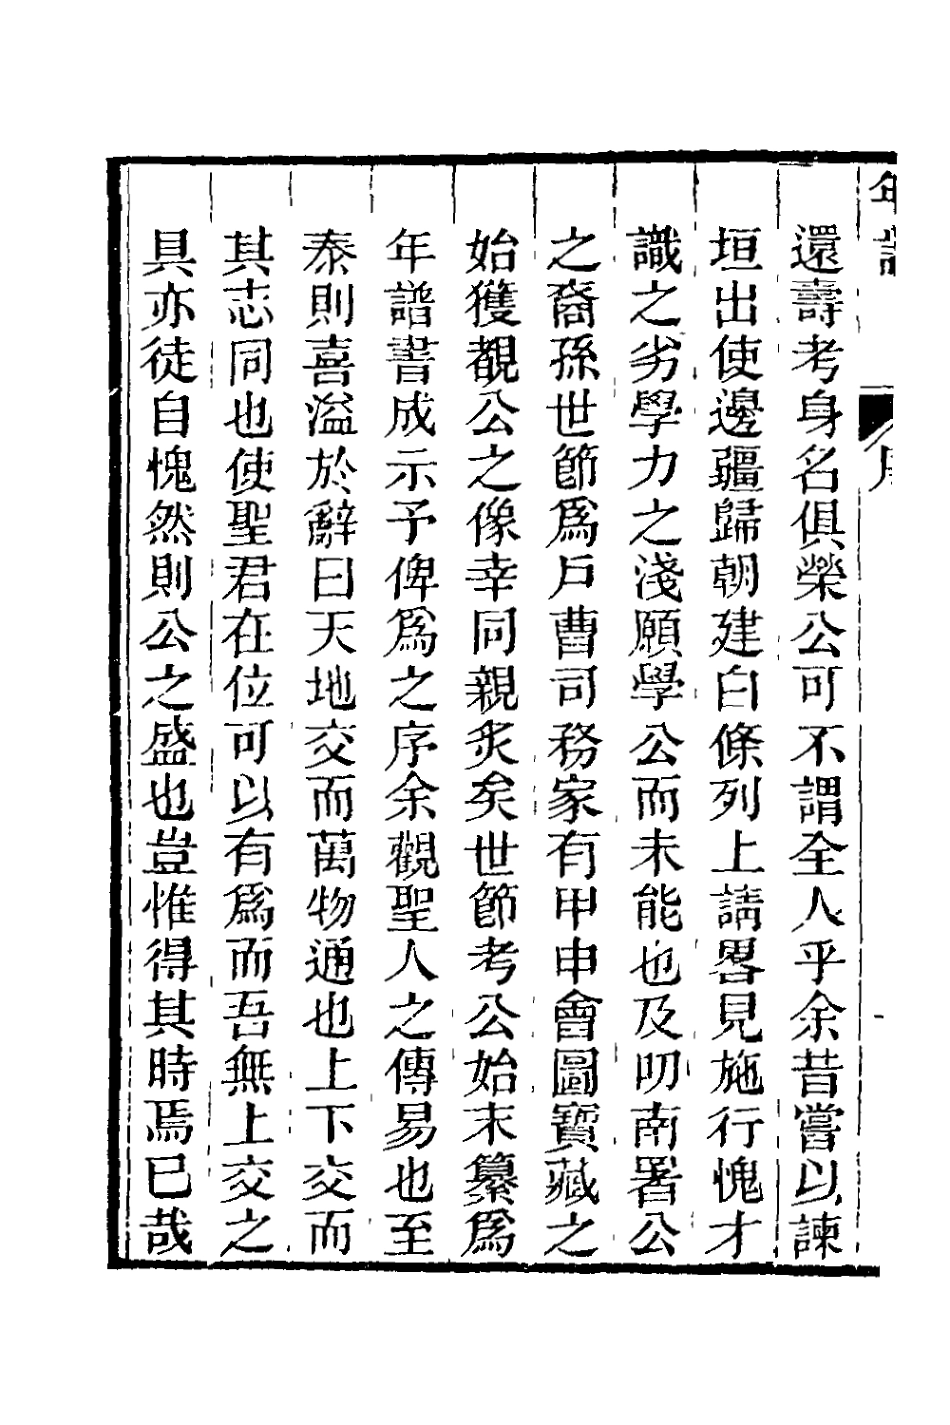 年譜
序
還壽考身名俱榮公可不謂全人乎余昔嘗以諫
垣出使邊疆歸朝建白條列上請畧見施行愧才
識之劣學力之淺願學公而未能也及叨南署公
之裔孫世節爲戶曹司務家有甲申會圖寶藏之
始獲覩公之像幸同親炙矣世節考公始末纂爲
年譜書成示予俾爲之序余觀聖人之傳易也至
泰則喜溢於辭曰天地交而萬物通也上下交而
其志同也使聖君在位可以有爲而吾無上交之
具亦徒自愧然則公之盛也豈惟得其時焉已哉